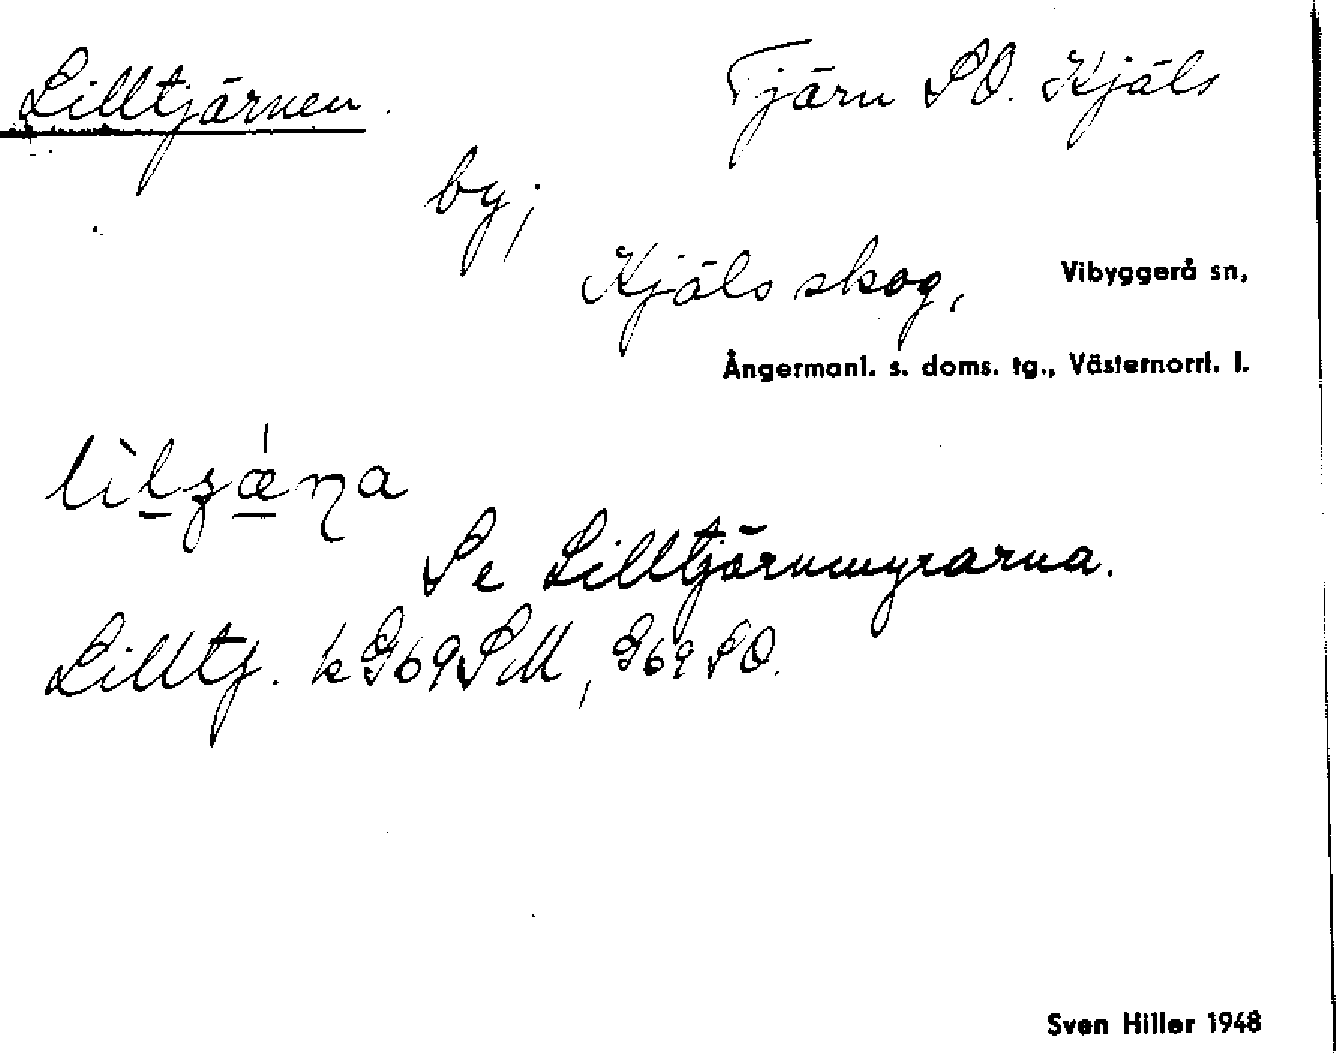 Lilltjärnen. Tjärn SO. Kjäls
by;
Kjäls skog, Vibyggerå sn,
Ångermanl. s. doms. tg., Västernorrl. l.
Se Lilltjärnmyrarna.
Lilltj. k G69SM, G69 SO.
Sven Hiller 1948